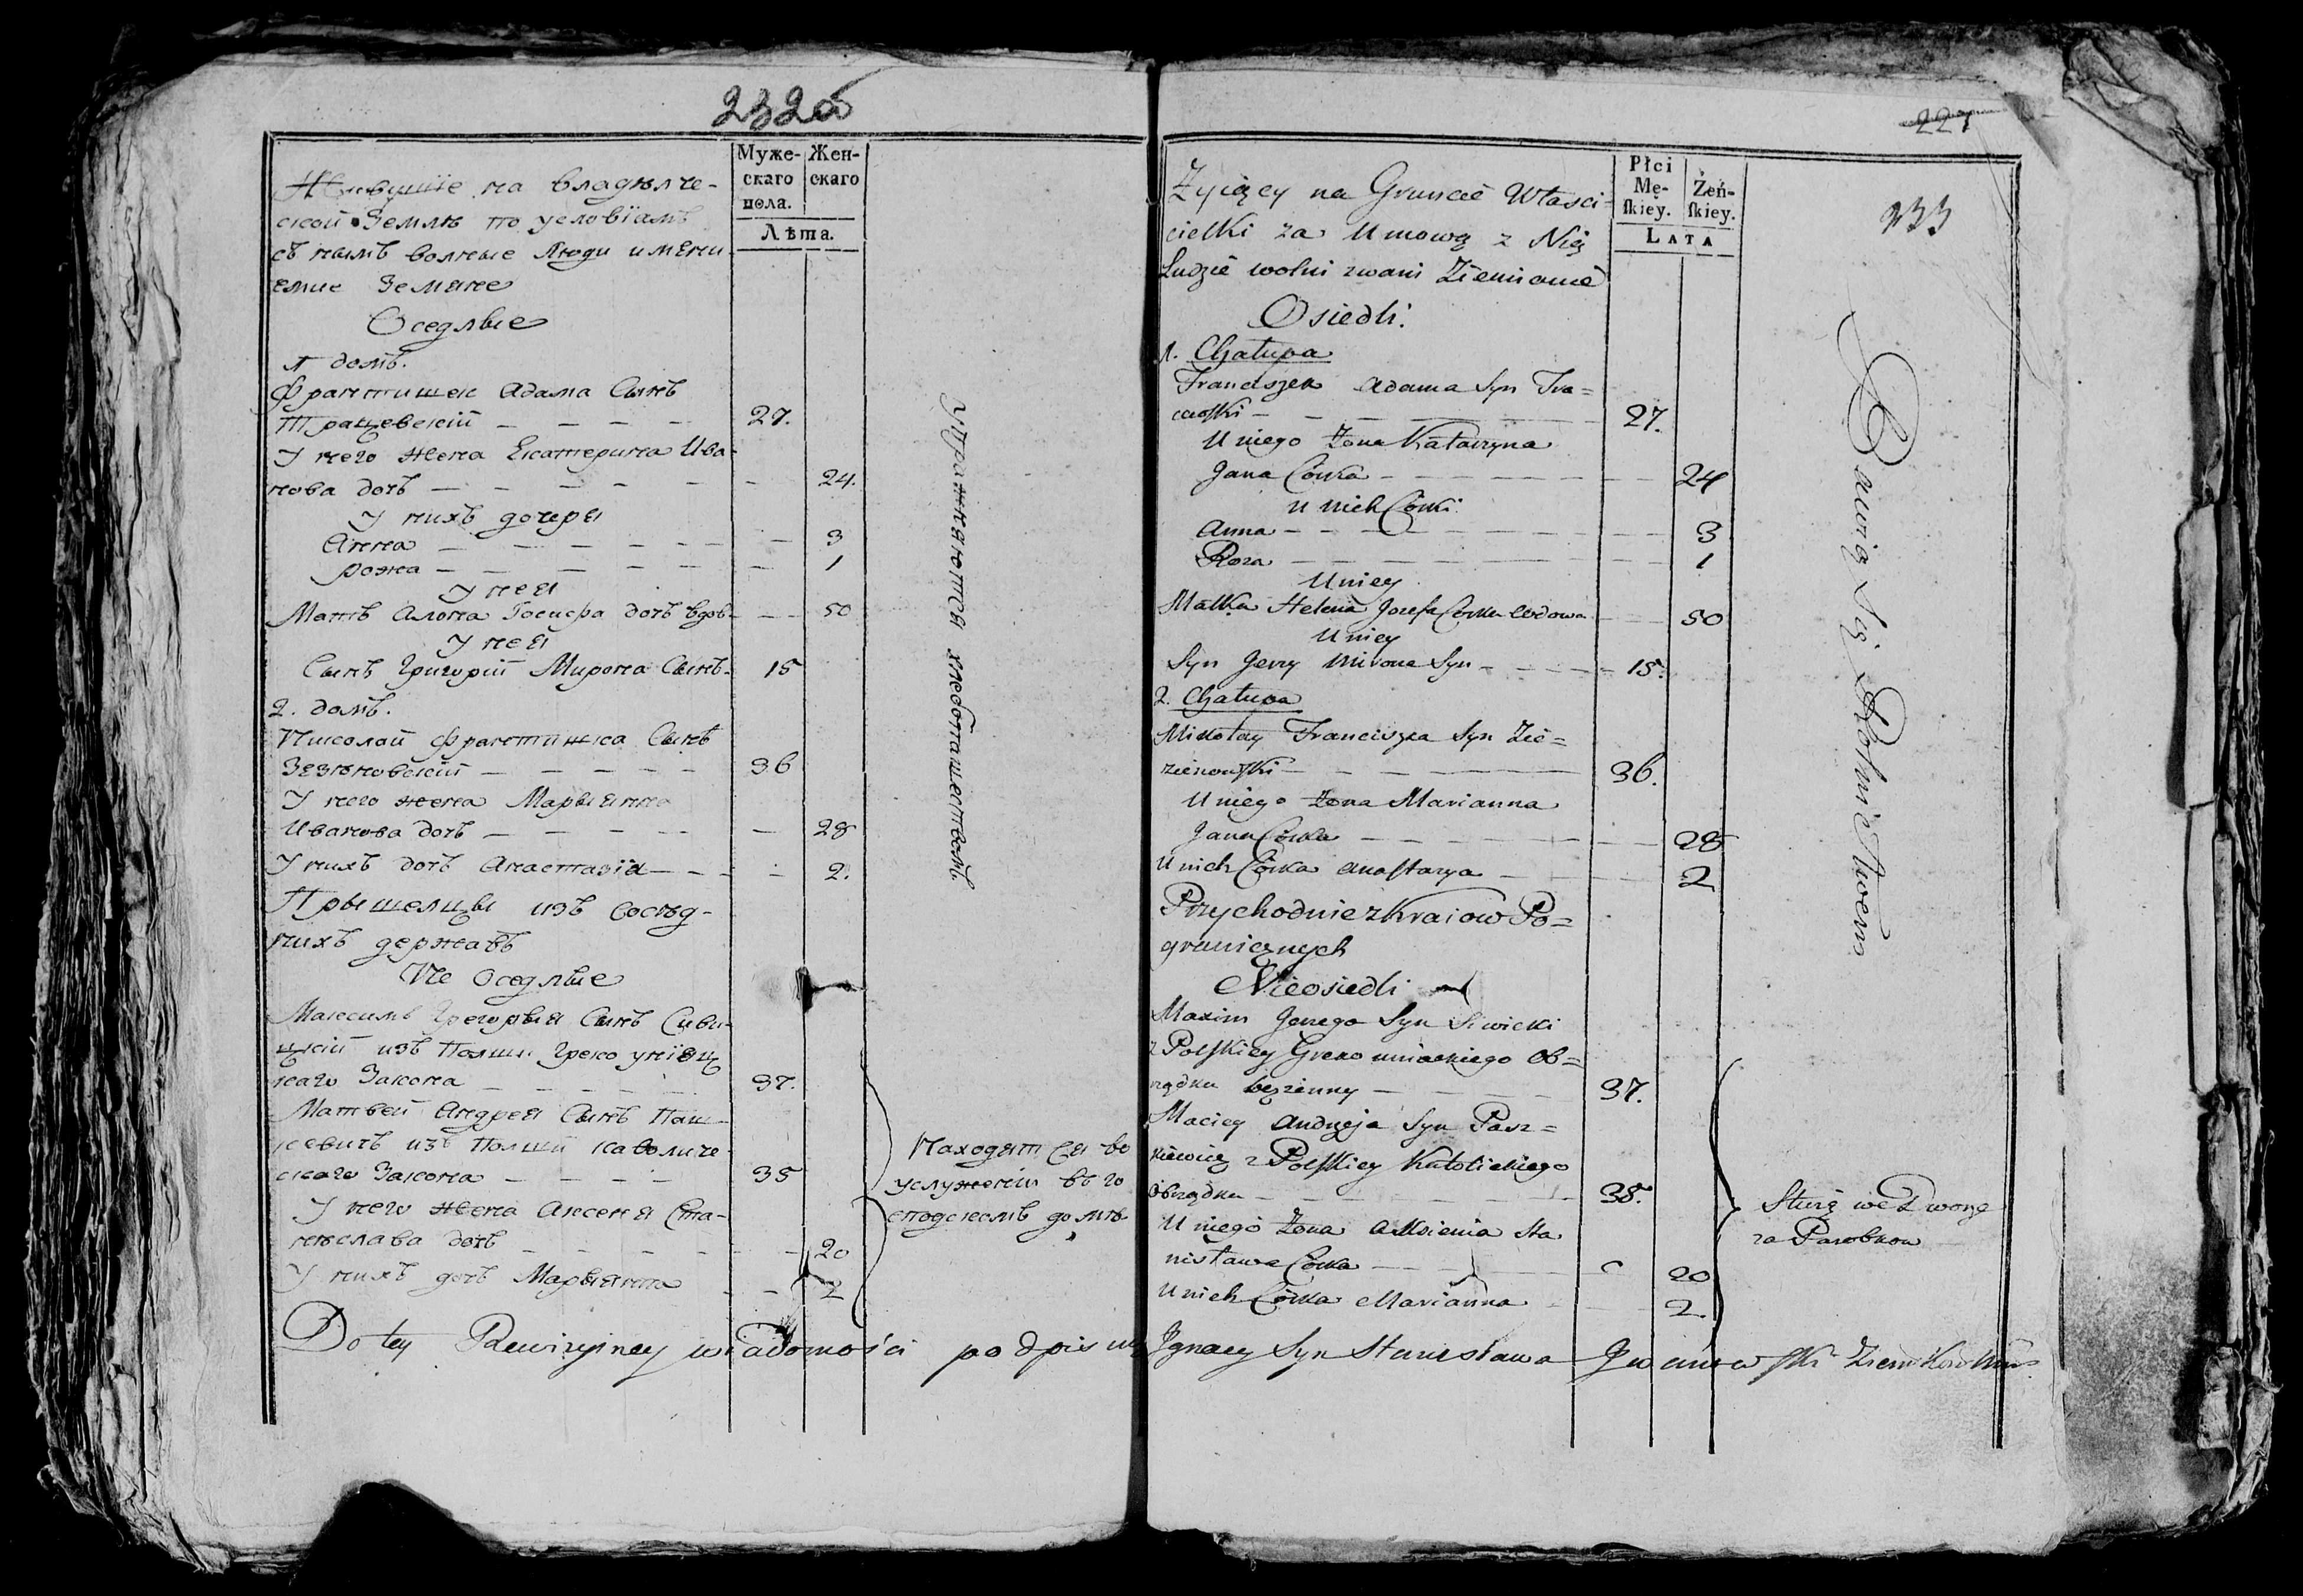 232об
Муже-
скаго
пола.
Жен-
скаго
Лѣта.
Живущіе на владѣлче-
ской Землѣ по условіамъ
съ нымъ волные Люди имени
емие Земяне
Оседлые
1 домъ.
Франтишек Адама Сынъ
Трацевскій — — — — 27.
У него жена Екатерина Ива-
нова дочь — — — — 24.
У нихъ дочеры
Анна — — — — 3
рожа — — — — 1
У нея
Мать Алона Іосифа дочь вдов- — — 50
У нея
Сынъ Григорій Мирона Сынъ- 15
2. домъ.
Николай Франтишка Сынъ
Зезюновскій — — — — 36
У него жена Марыянна
Иванова дочь — — — — 28
У нихъ дочь Анастазія — — — 2.
Прышелцы изъ Сосѣд-
нихъ державъ
Не Оседлые
Максимъ Грегорыя Сынъ Сиви-
цкій изъ Полши Греко уніяц
каго Закона — — — — 37.
Матвей Андрея Сынъ Паш-
кевичъ изъ Полши католиче
скаго Закона — — — — 35
У него жена Аксеня Ста-
нислава дочь — — — — 20
У нихъ дочь Марыянна — — 2
Упражняются хлебопашествомъ.
Находят ся во
услуженіи въ го
сподскомъ домѣ
227
233
Płci
Mę-
skiey.
Żeń-
skiey.
LATA
Żyiący na Gruncie Własci=
cielki za Umową z Nią
Ludzie wolni zwani Ziemianie
Osiedli.
1. Chałupa
Franciszek Adama Syn Tra=
cewski — — — — 27.
U niego Żona Katarzyna
Jana Córka — — — — 24
U nich Córki
Anna — — — — 3
Roza — — — — 1
U niey
Matka Helena Jozefa Corka wdowa — — 50
U niey
Syn Jerzy Mirona Syn — — — 15.
2. Chałupa
Mikołay Franciszka Syn Zie=
zienowski — — — — 36.
U niego Żona Marianna
Jana Córka — — — — 28
U nich Córka Anastazya — — — 2
Przychodnie z Kraiow Po=
granicznych
Nieosiedli
Maxim Jerzego Syn Siwicki
z Polskiey Greko uniackiego Ob=
rządku bezżenny — — — 37.
Maciey Andrzeja Syn Pasz=
kiewicz z Polskiey Katolickiego
Obrządku — — — — 35.
U niego Żona Axienia Sta
nisława Corka — — — — 20
U nich Córka Marianna — — 2.
Bawią Się Rolnictwem
Służą we Dworze
za Parobkow
Do tey Rewizyiney wiadomości podpisuię Ignacy Syn Stanisława